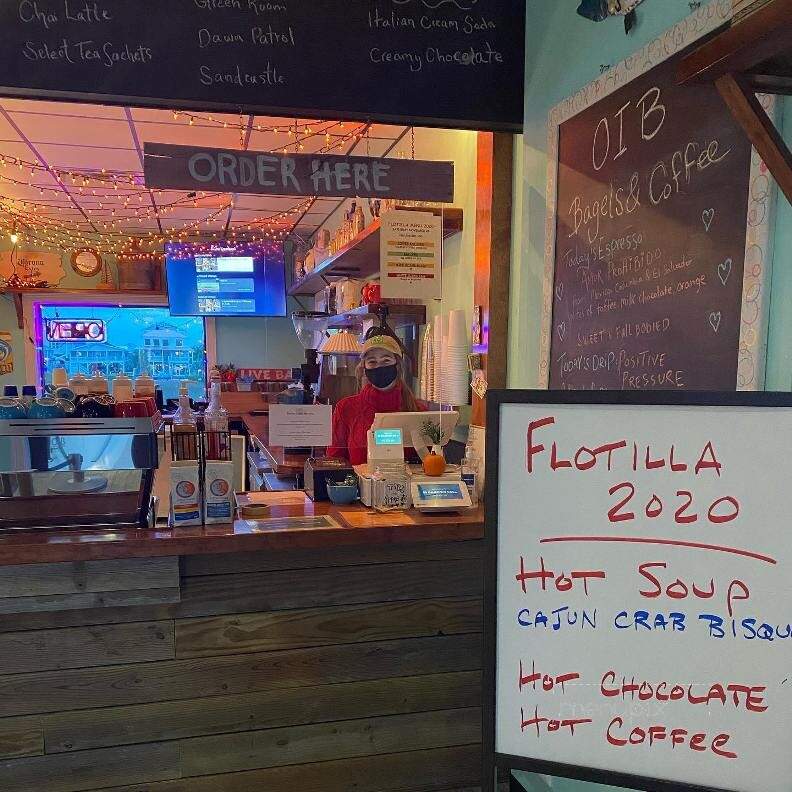 Chai Latte
Select Tea Sachets
Green Room
Dawn Patrol
Sandcastle
Italian Cream Soda
Creamy Chocolate
ORDER HERE
FLOTILLA MENU 2020
OIB
Bagels & Coffee
Today's Espresso
AMOR PROHIBIDO
Mexico Columbia & El Salvador
Notes of toffee milk chocolate orange
SWEET & FULL BODIED
TODAY'S DRIP: POSITIVE
PRESSURE
Corona
LIVE BA
FLOTILLA
2020
HOT SOUP
CAJUN CRAB BISQU
HOT CHOCOLATE
HOT COFFEE